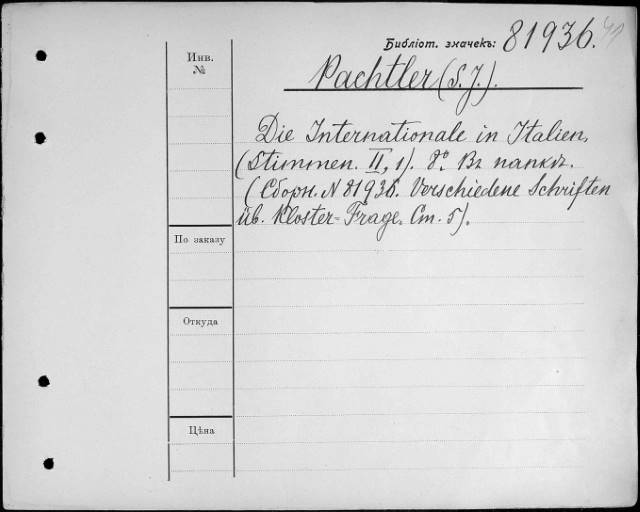 Библіот. значекъ: 81936.
Инв.
№
Pachtler (S. J.).
Die Internationale in Italien,
(Stimmen. II, 1). 8°. Въ папкѣ.
(Сборн. N 81936. Verschiedene Schriften
üb. Kloster-Frage. Ст. 5).
По заказу
Откуда
Цѣна